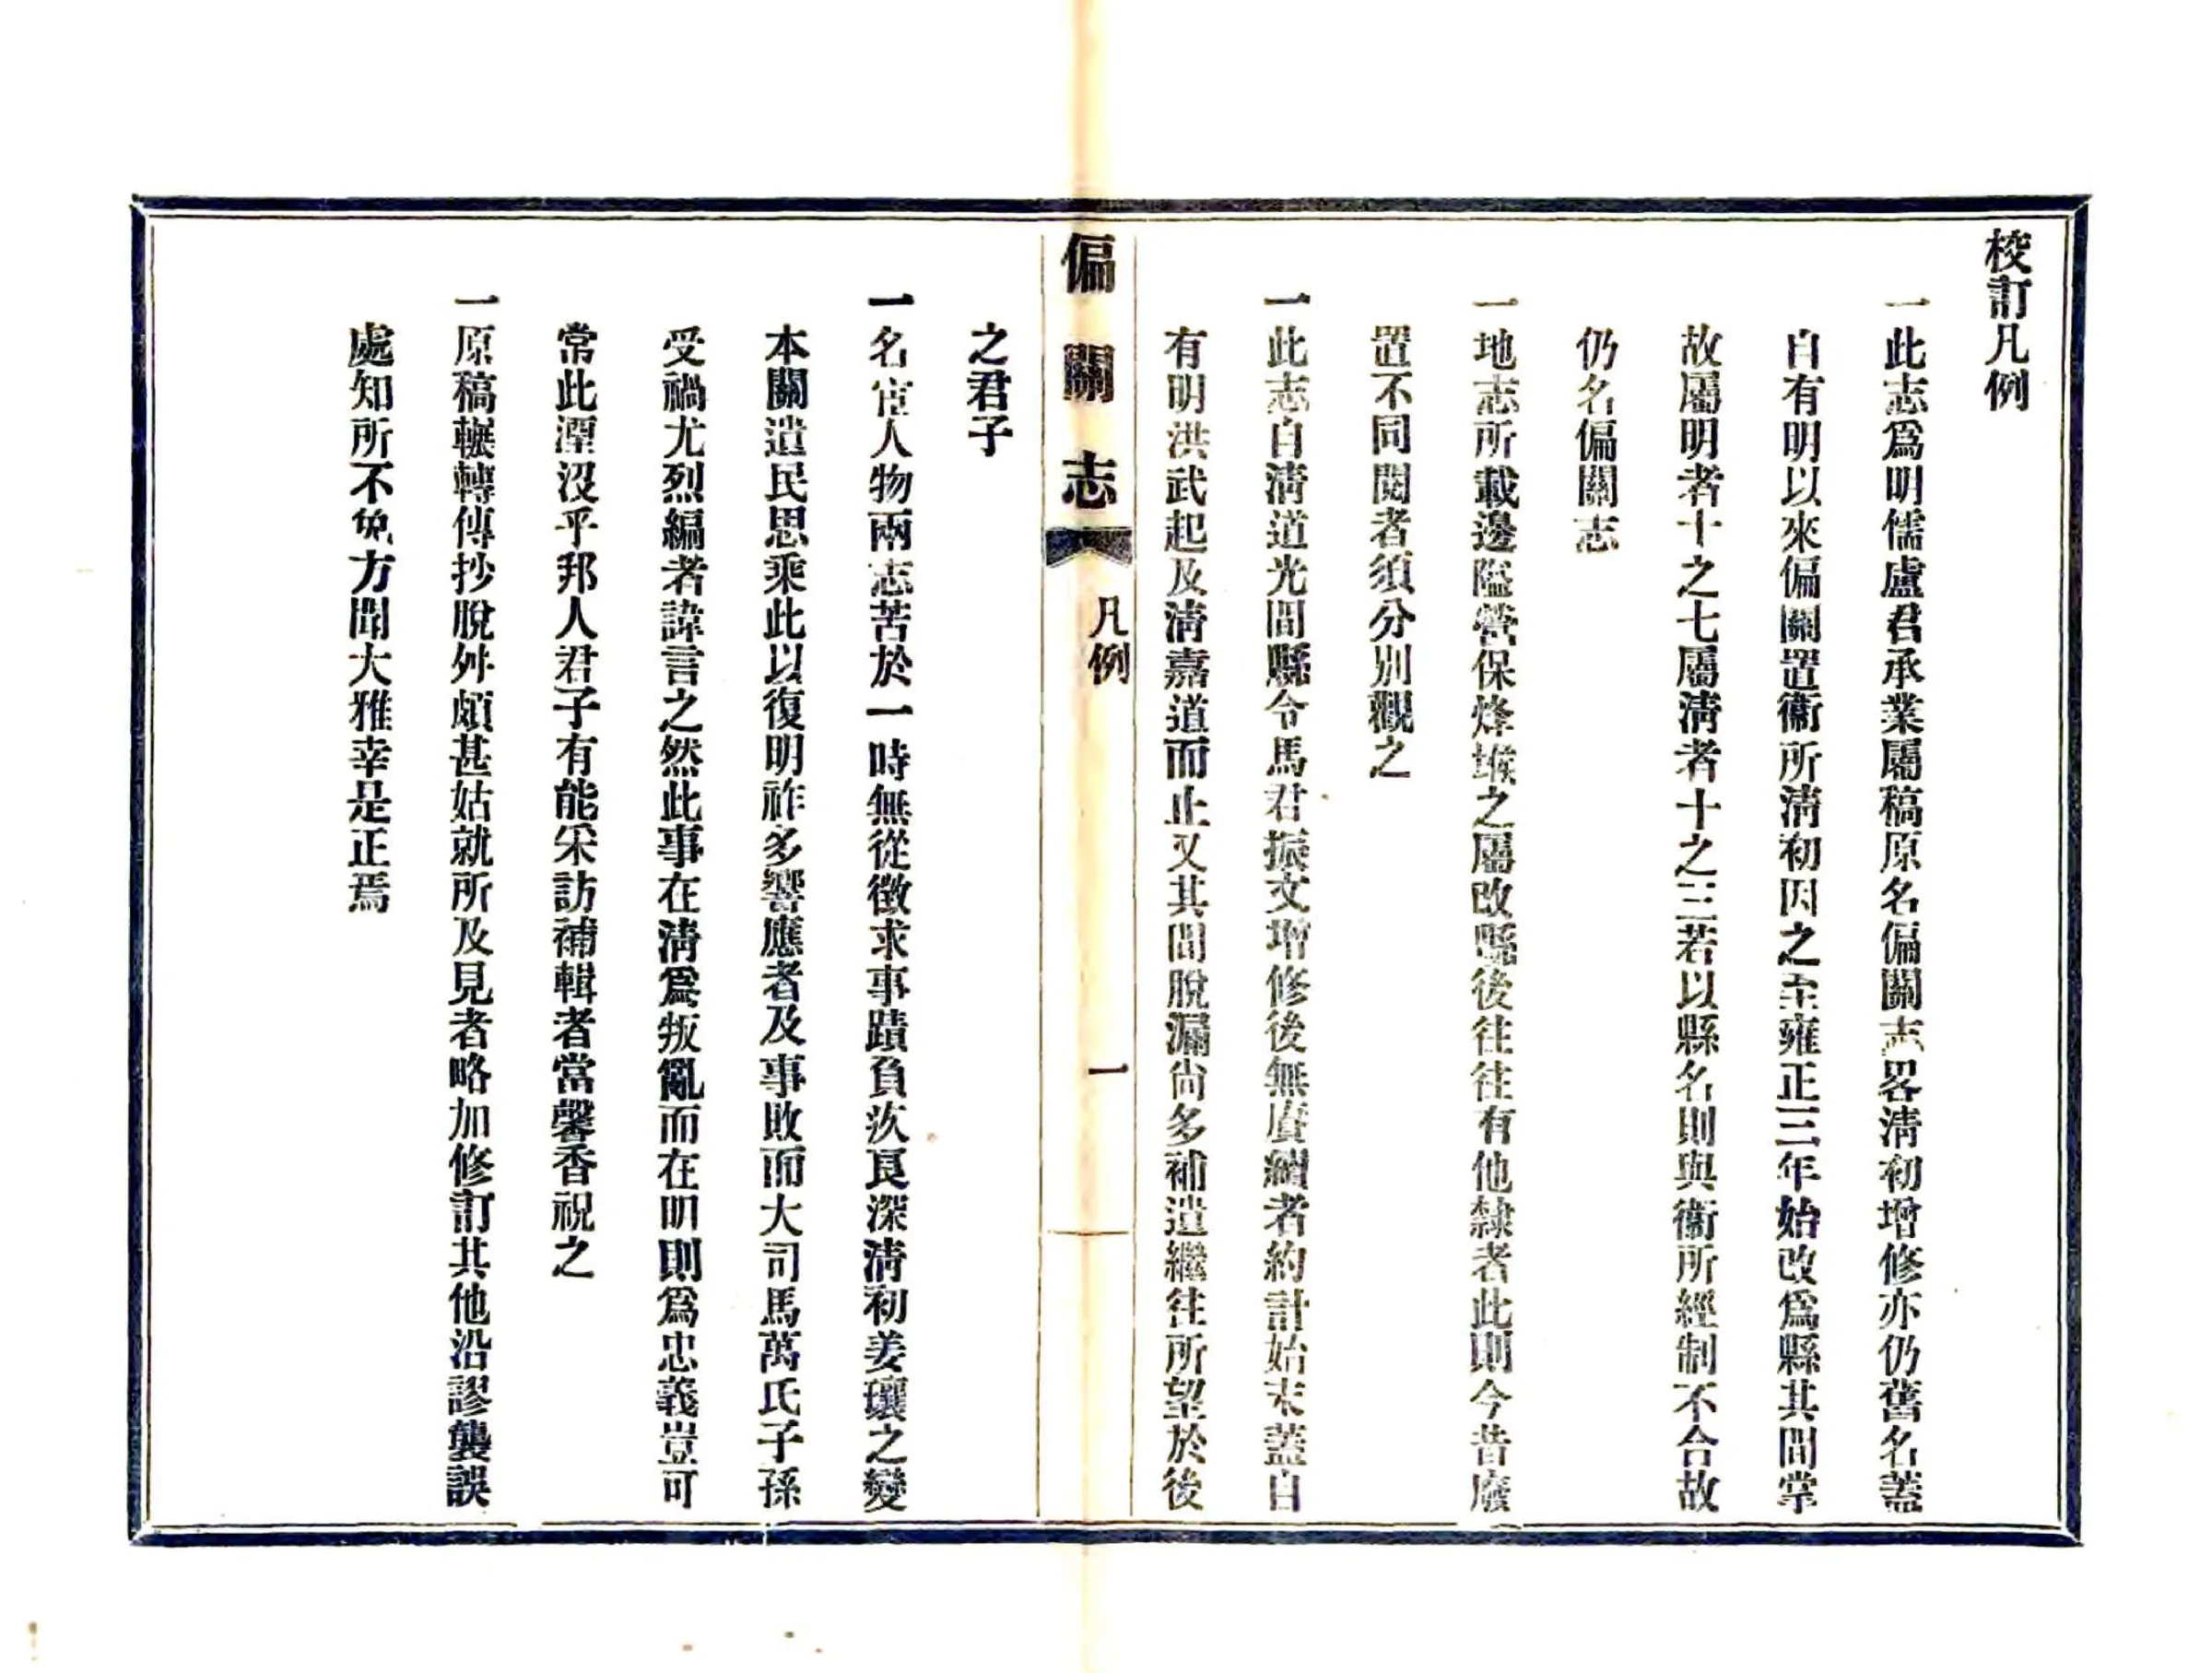 校訂凡例
一此志爲明儒盧君承業屬稿原名偏關志畧清初增修亦仍舊名蓋
自有明以來偏關置衞所清初因之至雍正三年始改爲縣其間掌
故屬明者十之七屬清者十之三若以縣名則與衞所經制不合故
仍名偏關志
一地志所載邊隘營保烽堠之屬改縣後往往有他隸者此則今昔廢
置不同閱者須分別觀之
一此志自清道光間縣令馬君振文增修後無賡續者約計始末蓋自
有明洪武起及清嘉道而止又其間脫漏尚多補遺繼往所望於後
偏關志
凡例
一
之君子
一名宦人物兩志苦於一時無從徵求事蹟負疚良深清初姜瓖之變
本關遺民思乘此以復明祚多響應者及事敗而大司馬萬氏子孫
受禍尤烈編者諱言之然此事在清爲叛亂而在明則爲忠義豈可
常此湮沒乎邦人君子有能采訪補輯者當馨香祝之
一原稿輾轉傳抄脫舛頗甚姑就所及見者略加修訂其他沿謬襲誤
處知所不免方聞大雅幸是正焉